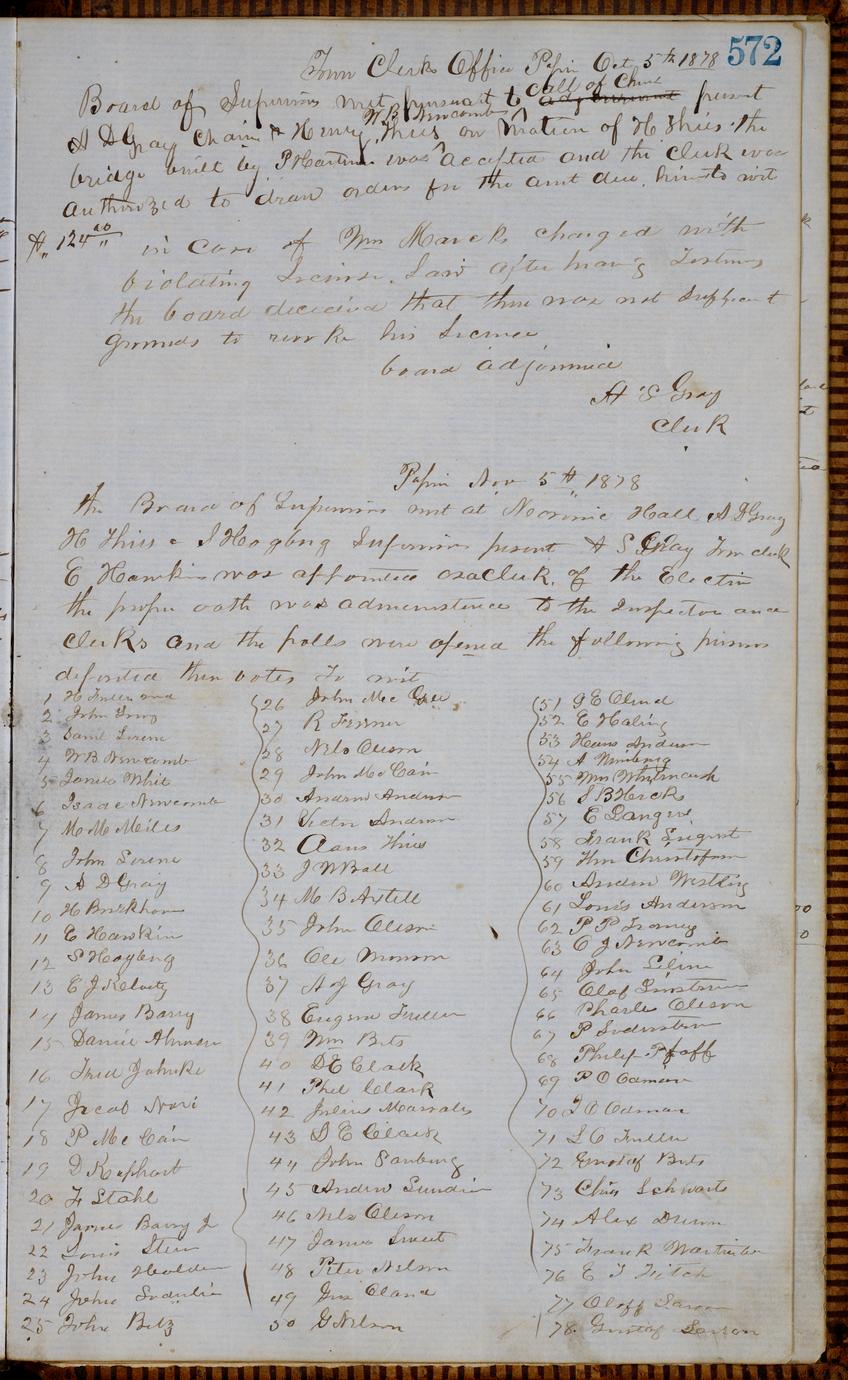 572
Town Clerks Office Pepin Oct 5th 1878
Board of Supervisors met pursuant to call of Chair present
A D Gray Chair & Henry Thies W B Newcomb on Motion of H Thies the
bridge built by P Martin was accepted and the Clerk was
authorized to draw orders for the amt due him to wit
124
in case of Wm Marcks charged with
violating License Law after having Testimony
the board decided that there was not sufficent
grounds to revoke his License
board adjourned
A S Gray
Clerk
Pepin Nov 5th 1878
the Board of Supervisors met at Masonic Hall A D Gray
H Thies & S Hogberg Supervisors present A S Gray Town clerk
E Hawkins was appointed as a Clerk of the Election
the proper oath was administered to the Inspectors and
Clerks and the polls were opened the following persons
deposited their votes To wit
1 H
2 John
3 Saml Serene
4 W B Newcomb
5 James White
6 Isaac Newcomb
7 M M Miles
8 John Serene
9 A D Gray
10 H
11 E Hawkin
12 S Hogberg
13 E J
14 James Barry
15 Daniel
16 Fred Jahnke
17 Jacob
18 P Mc Cain
19 D Kephart
20 F Stahl
21 James Barry Jr
22 Louis
23 John Holden
24 John
25 John Betz
26 John Mc Gee
27 R
28 Nels Oleson
29 John McCain
30 Andrew Anderson
31 Victor Anderson
32 Claus Thies
33 J W Ball
34 M B Axtell
35 John Oleson
36 Ole Monson
37 A J Gray
38 Eugene Fuller
39 Wm Bets
40 D E Clark
41 Phil Clark
42 Julius Marcalis
43 D E Clark
44 John
45 Andrew Lundin
46 Nels Oleson
47 James Sweet
48 Peter Nelson
49 Cland
50 G Nelson
51 G E
52 E Haling
53 Hans Anderson
54 A
55 Wm Whitmarsh
56 S B Hecks
57 E
58 Frank
59 Christofson
60 Andrew Westling
61 Louis Anderson
62 P P
63 O J Newcomb
64 John
65 Olof
66 Charles Oleson
67 P
68 Philip Pfaff
69 P O Odman
70 Odman
71 S C Fuller
72 Gustof Bets
73 Chas Schwarts
74 Alex
75 Frank
76 E J Fitch
77 Oloff Larson
78 Gustof Larson